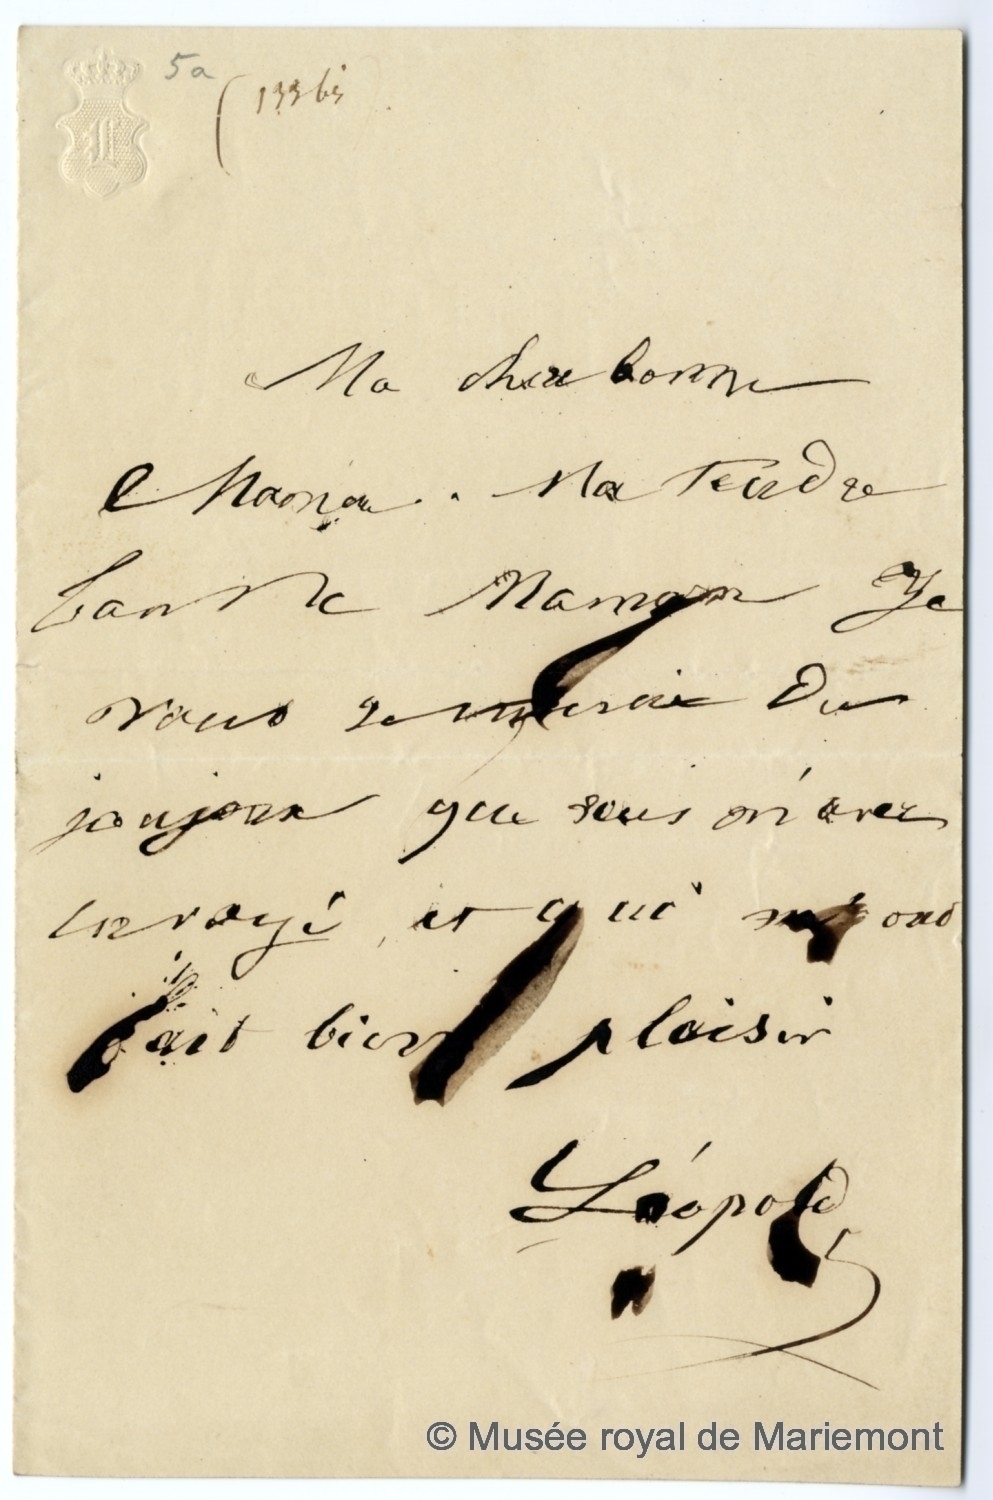 5a
(133 bis
L
Ma chere bonne
Maman. Ma Tendre
bonne Maman Je
vous remercie Du
joujoux que vous m'avez
envoyé, et qui m'ond
fait bien plaisir
Léopold
© Musée royal de Mariemont